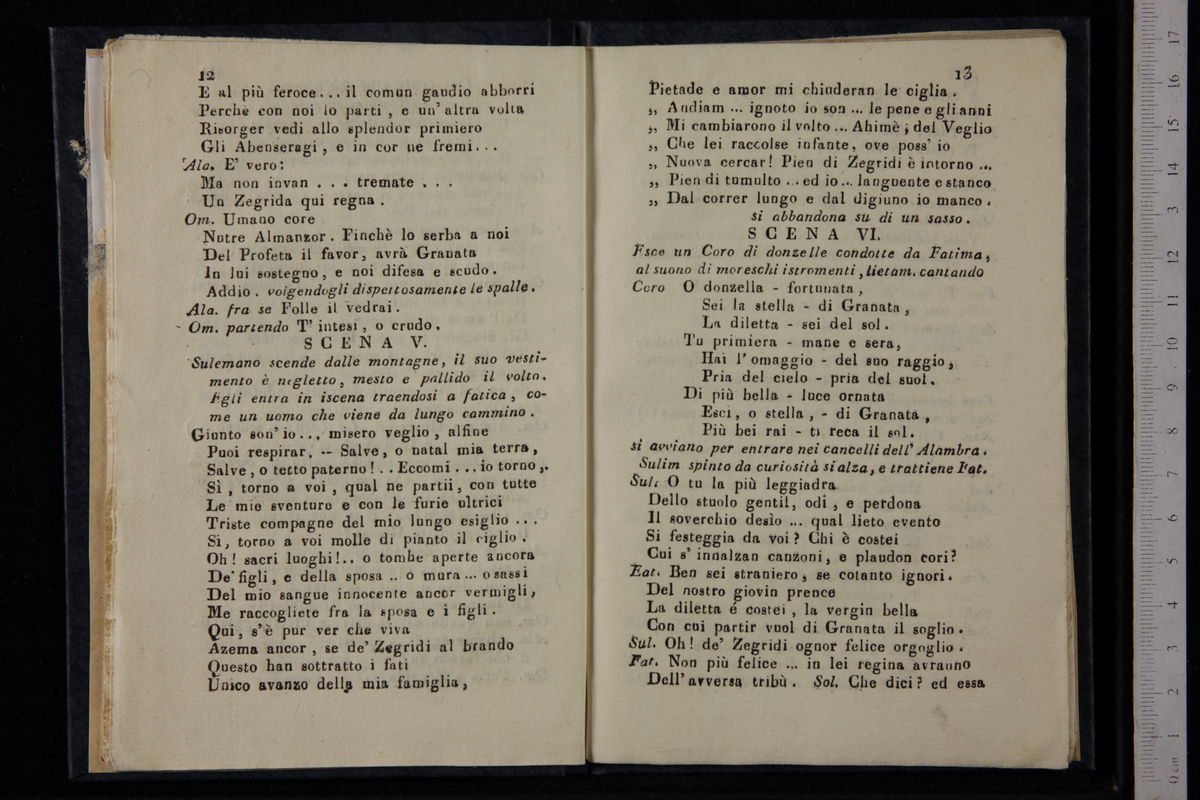 12
E al più feroce... il comun gaudio abborri
Perchè con noi lo parti, e un' altra volta
Risorger vedi allo splendor primiero
Gli Abenseragi, e in cor ne fremi...
Ala. E' vero:
Ma non invan . . . tremate . . .
Un Zegrida qui regna.
Om. Umano core
Nutre Almanzor. Finchè lo serba a noi
Del Profeta il favor, avrà Granata
In lui sostegno, e noi difesa e scudo.
Addio. volgendogli dispettosamente le spalle.
Ala. fra se Folle il vedrai.
Om. partendo T' intesi, o crudo.
SCENA V.
Sulemano scende dalle montagne, il suo vesti-
mento è negletto, mesto e pallido il volto.
Egli entra in iscena traendosi a fatica, co-
me un uomo che viene da lungo cammino.
Giunto son' io..., misero veglio, alfine
Puoi respirar. -- Salve, o natal mia terra,
Salve, o tetto paterno!.. Eccomi... io torno,.
Sì, torno a voi, qual ne partii, con tutte
Le mie sventure e con le furie ultrici
Triste compagne del mio lungo esiglio...
Sì, torno a voi molle di pianto il ciglio.
Oh! sacri luoghi!.. o tombe aperte ancora
De' figli, e della sposa .. o mura... o sassi
Del mio sangue innocente ancor vermigli,
Me raccogliete fra la sposa e i figli.
Qui, s' è pur ver che viva
Azema ancor, se de' Zegridi al brando
Questo han sottratto i fati
Unico avanzo della mia famiglia,
13
Pietade e amor mi chiuderan le ciglia.
„ Andiam ... ignoto io son ... le pene e gli anni
„ Mi cambiarono il volto ... Ahimè; del Veglio
„ Che lei raccolse infante, ove poss' io
„ Nuova cercar! Pien di Zegridi è intorno ...
„ Pien di tumulto ... ed io... languente e stanco
„ Dal correr lungo e dal digiuno io manco.
si abbandona su di un sasso.
SCENA VI.
Esce un Coro di donzelle condotte da Fatima,
al suono di moreschi istromenti, lietam. cantando
Coro O donzella - fortunata,
Sei la stella - di Granata,
La diletta - sei del sol.
Tu primiera - mane e sera,
Hai l' omaggio - del suo raggio,
Pria del cielo - pria del suol.
Di più bella - luce ornata
Esci, o stella, - di Granata,
Più bei rai - ti reca il sol.
si avviano per entrare nei cancelli dell' Alambra.
Sulim spinto da curiosità si alza, e trattiene Fat.
Sul. O tu la più leggiadra
Dello stuolo gentil, odi, e perdona
Il soverchio desìo ... qual lieto evento
Si festeggia da voi? Chi è costei
Cui s' innalzan canzoni, e plaudon cori?
Fat. Ben sei straniero, se cotanto ignori.
Del nostro giovin prence
La diletta é costei, la vergin bella
Con cui partir vuol di Granata il soglio.
Sul. Oh! de' Zegridi ognor felice orgoglio.
Fat. Non più felice ... in lei regina avranno
Dell' avversa tribù. Sol. Che dici? ed essa
0 cm 1 2 3 4 5 6 7 8 9 10 11 12 13 14 15 16 17